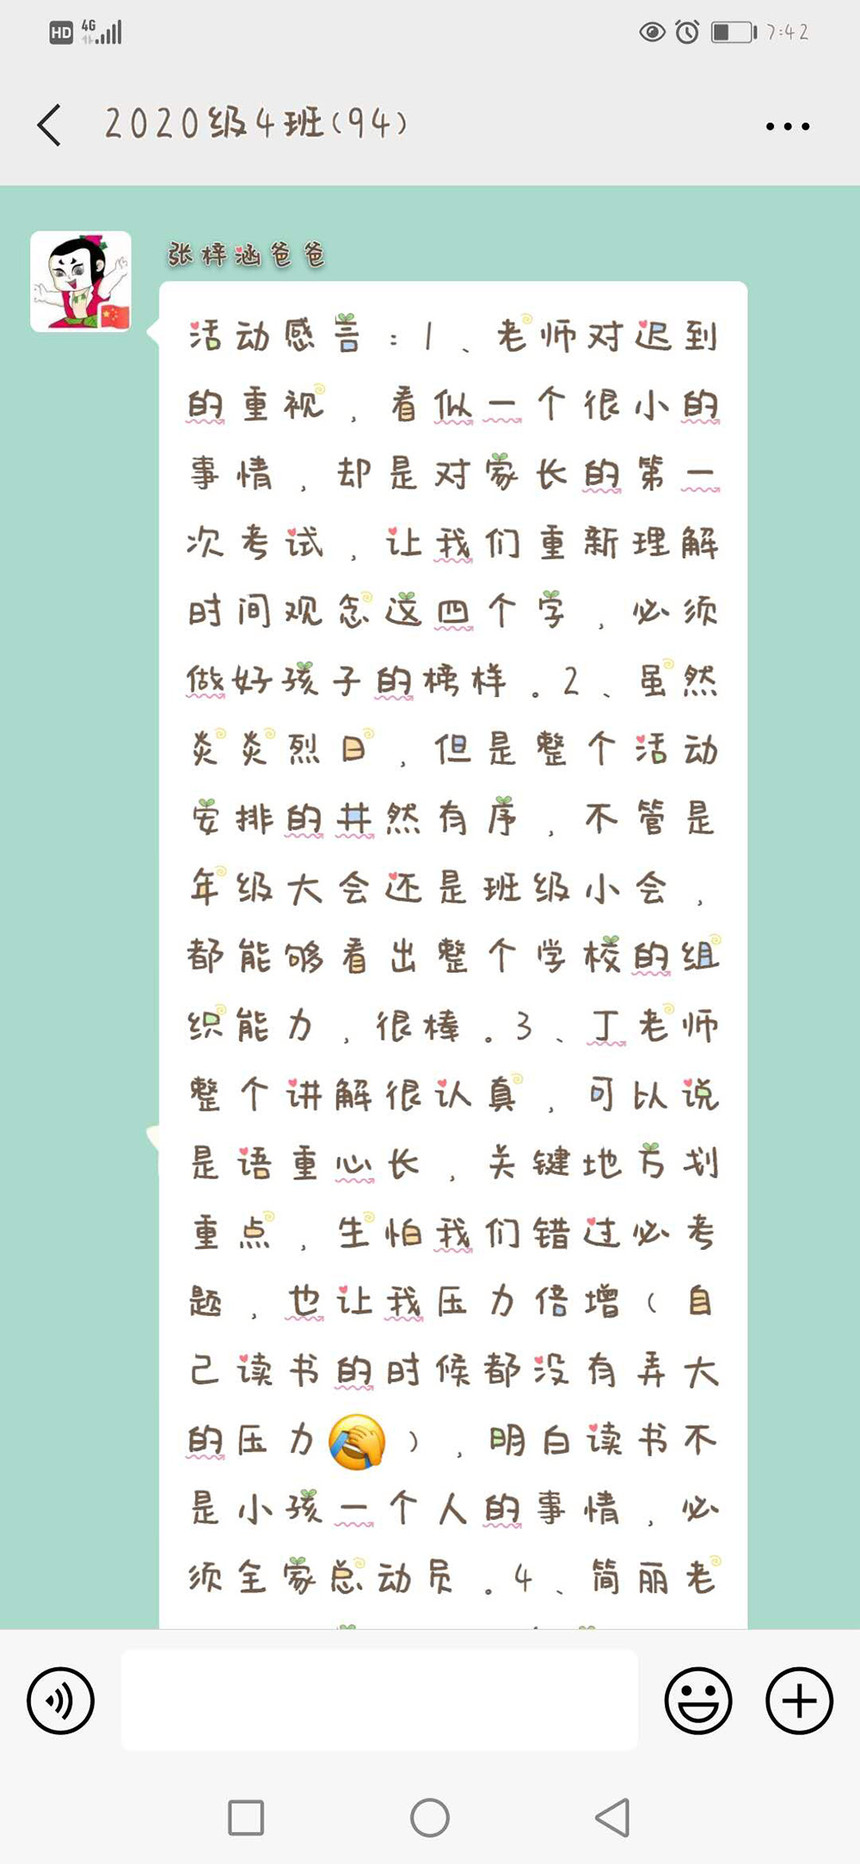 HD 4G 7:42
2020级4班(94)
张梓涵爸爸
活动感言：1、老师对迟到
的重视，看似一个很小的
事情，却是对家长的第一
次考试，让我们重新理解
时间观念这四个字，必须
做好孩子的榜样。2、虽然
炎炎烈日，但是整个活动
安排的井然有序，不管是
年级大会还是班级小会，
都能够看出整个学校的组
织能力，很棒。3、丁老师
整个讲解很认真，可以说
是语重心长，关键地方划
重点，生怕我们错过必考
题，也让我压力倍增（自
己读书的时候都没有弄大
的压力🤦），明白读书不
是小孩一个人的事情，必
须全家总动员。4、简丽老